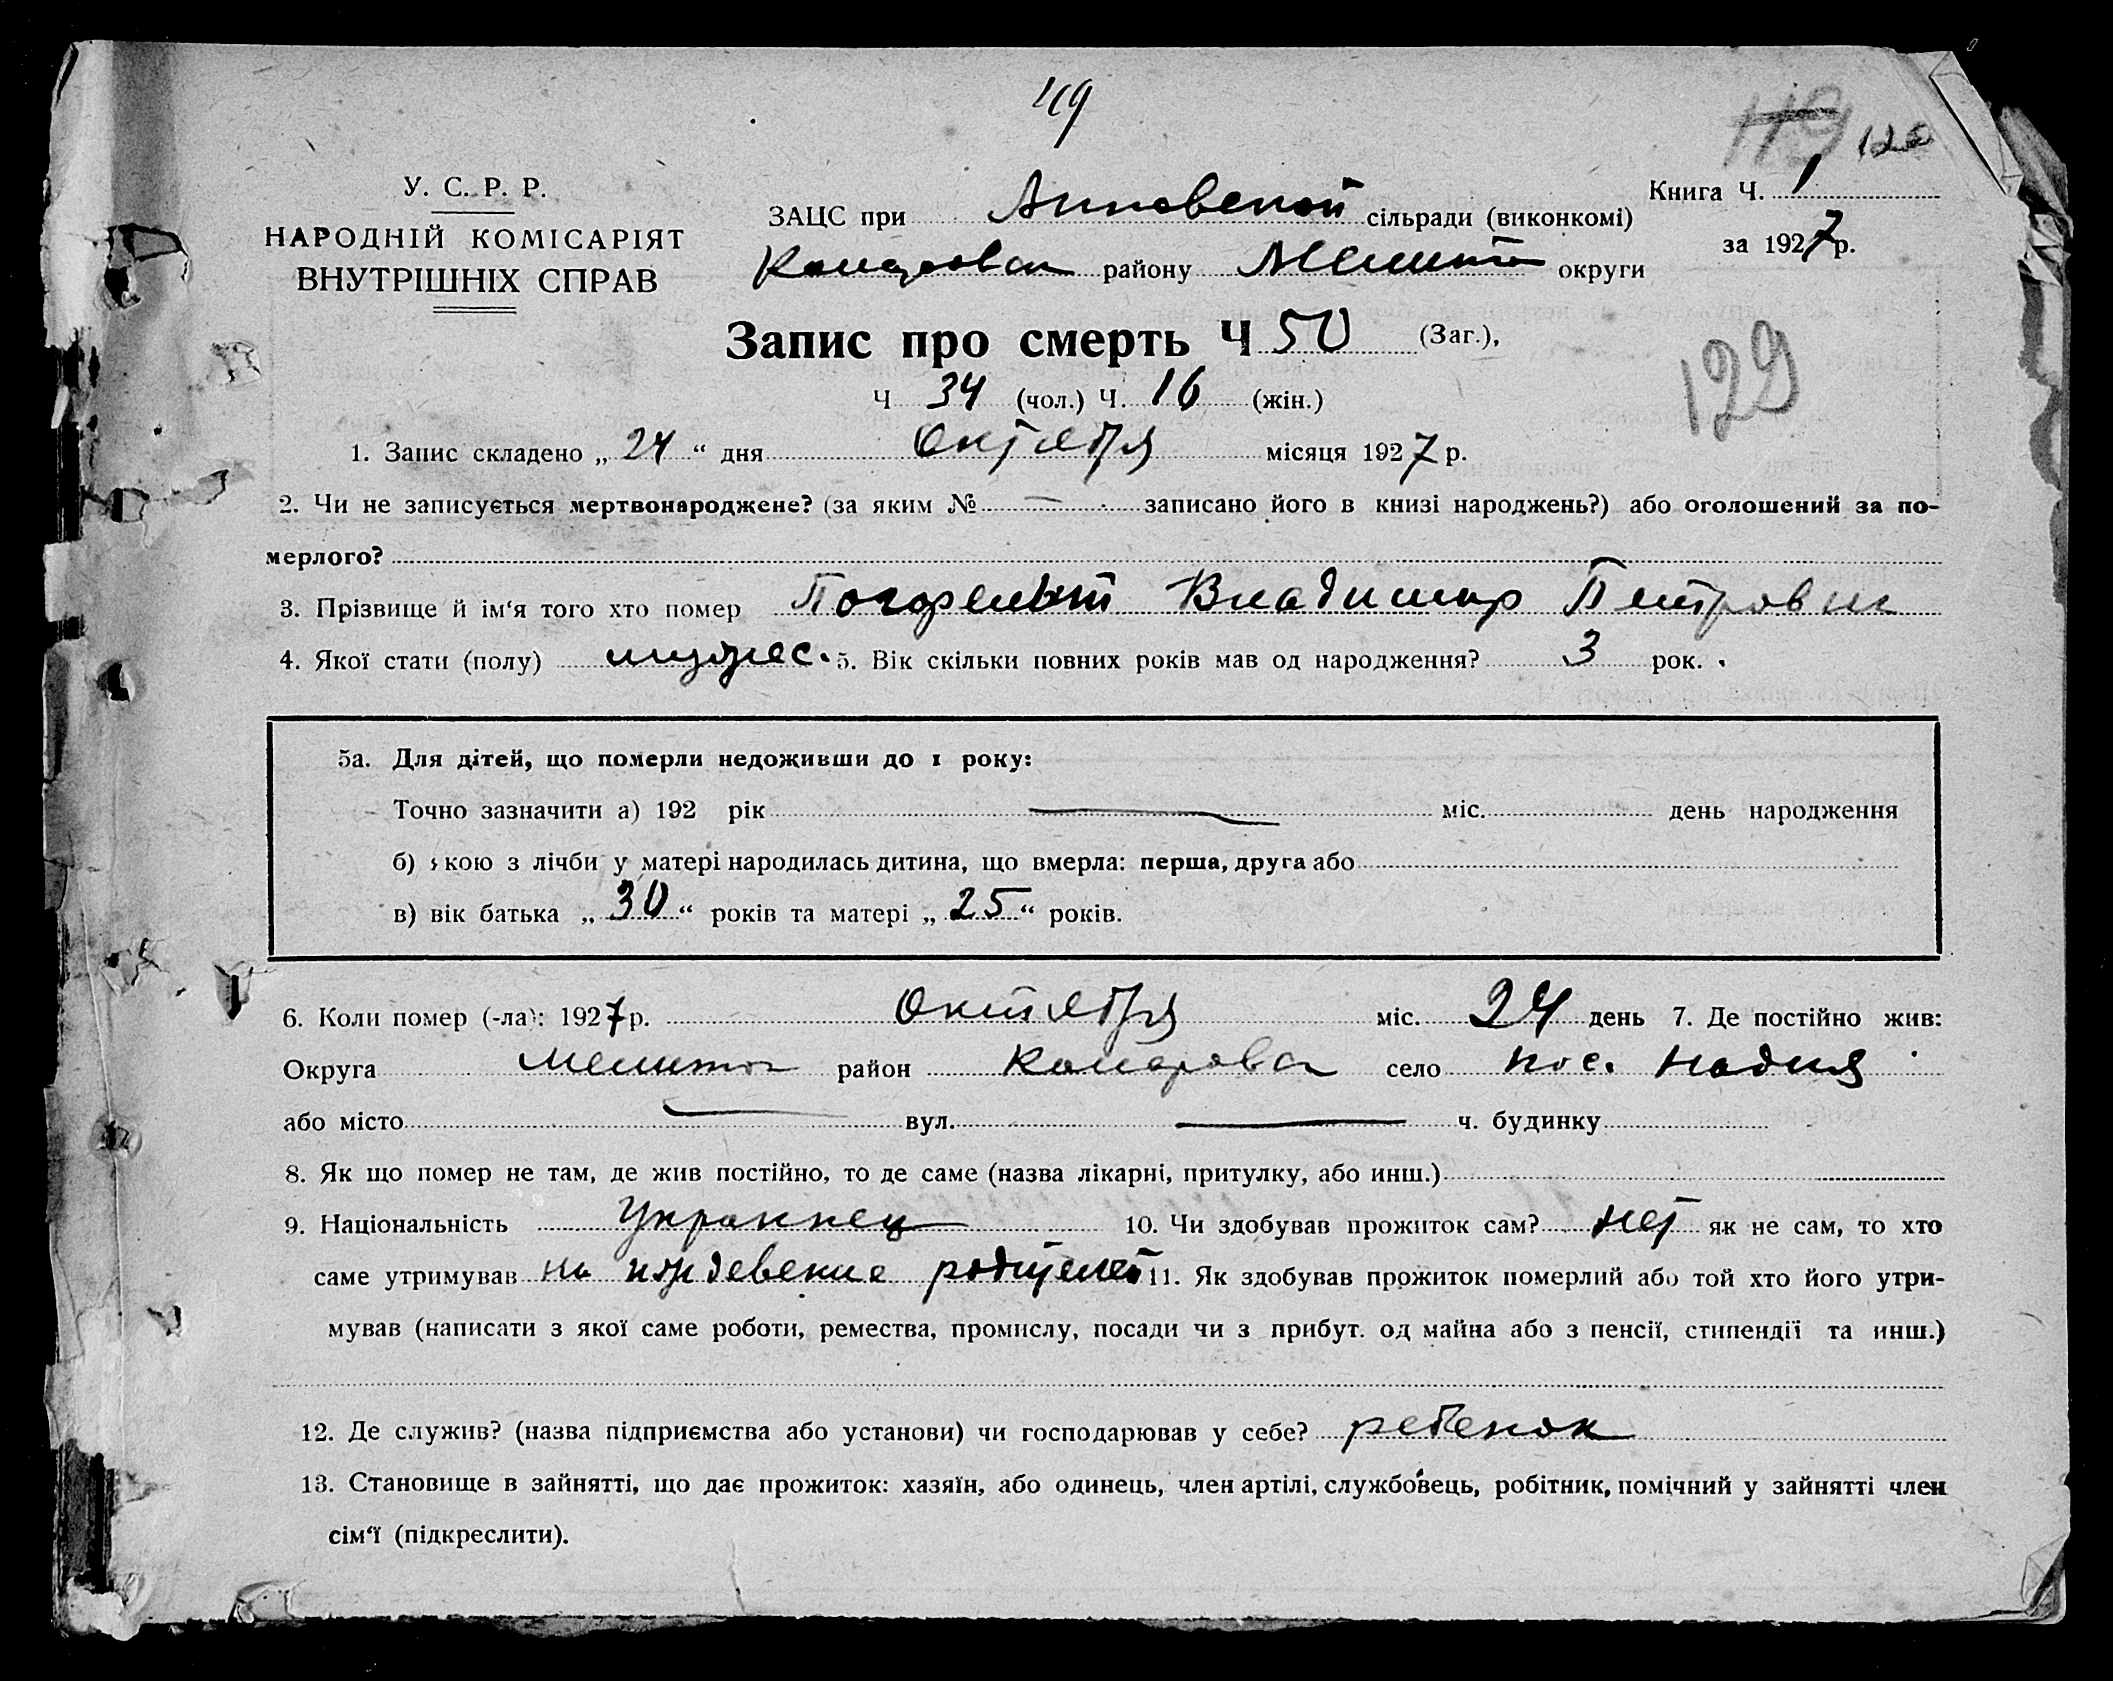 119
119 120
У. С. Р. Р.
НАРОДНІЙ КОМІСАРІЯТ
ВНУТРІШНІХ СПРАВ
Книга Ч. 1
за 1927 р.
ЗАЦС при Анновской сільради (виконкомі)
району Мелит округи
Запис про смерть Ч 50 (Заг.),
129
Ч 34 (чол.) Ч. 16 (жін.)
1. Запис складено „ 24 “ дня Октября місяця 1927 р.
2. Чи не записується мертвонароджене? (за яким № — записано його в книзі народжень?) або оголошений за по-
мерлого?
3. Прізвище й ім‘я того хто помер Владимир Петрович
4. Якої стати (полу) мужес. 5. Вік скільки повних років мав од народження? 3 рок.
5а. Для дітей, що померли недоживши до 1 року:
Точно зазначити а) 192 рік — міс. день народження
б) якою з лічби у матері народилась дитина, що вмерла: перша, друга або
в) вік батька „ 30 “ років та матері „ 25 “ років.
6. Коли помер (-ла): 1927 р. Октября міс. 24 день 7. Де постійно жив:
Округа Мелитоп район село пос. Надия
або місто — вул. — ч. будинку
8. Як що помер не там, де жив постійно, то де саме (назва лікарні, притулку, або инш.)
9. Національність Украинец 10. Чи здобував прожиток сам? нет як не сам, то хто
саме утримував на иждевение родителей 11. Як здобував прожиток померлий або той хто його утри-
мував (написати з якої саме роботи, ремества, промислу, посади чи з прибут. од майна або з пенсії, стипендії та инш.)
12. Де служив? (назва підприємства або установи) чи господарював у себе? ребенок
13. Становище в зайнятті, що дає прожиток: хазяїн, або одинець, член артілі, службовець, робітник, помічний у зайнятті член
сім‘ї (підкреслити).